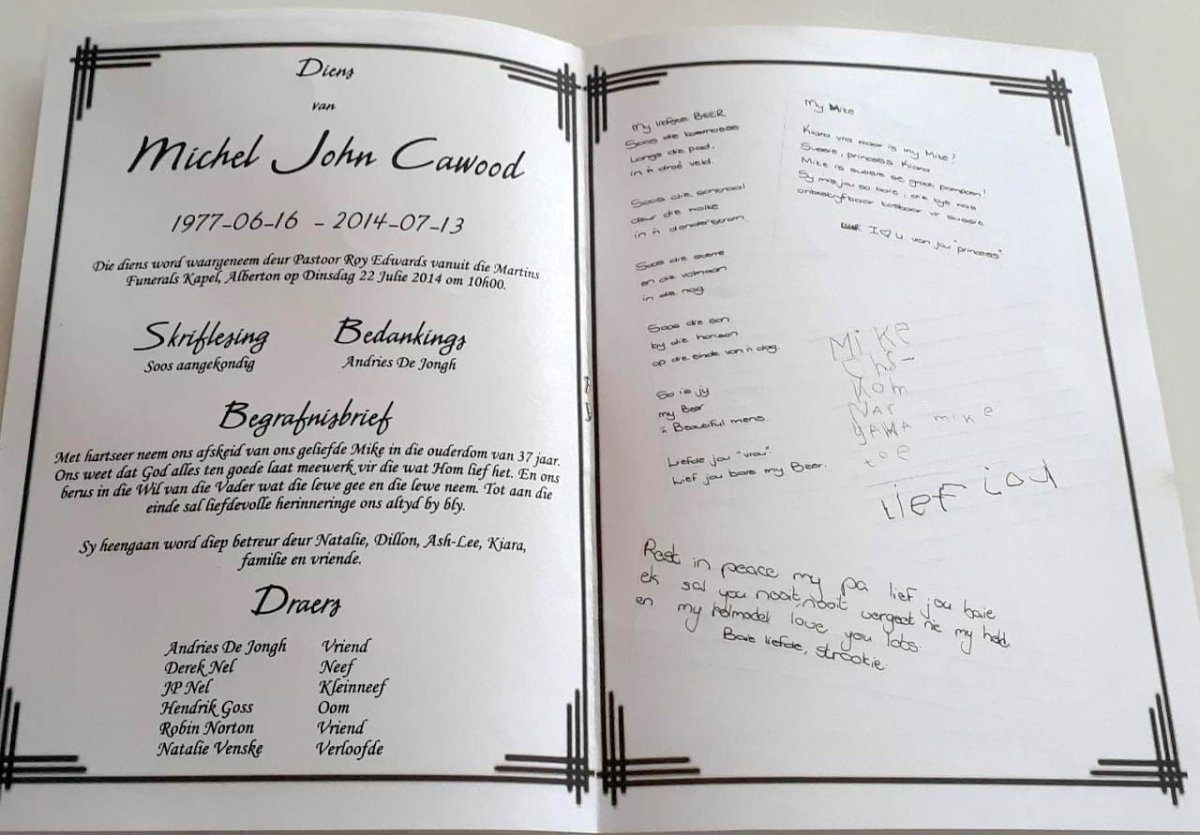 Diens
van
Michel John Cawood
1977-06-16 - 2014-07-13
Die diens word waargeneem deur Pastoor Roy Edwards vanuit die Martins
Funerals Kapel, Alberton op Dinsdag 22 Julie 2014 om 10h00.
Skriflesing
Soos aangekondig
Bedankings
Andries De Jongh
Begrafnisbrief
Met hartseer neem ons afskeid van ons geliefde Mike in die ouderdom van 37 jaar.
Ons weet dat God alles ten goede laat meewerk vir die wat Hom lief het. En ons
berus in die Wil van die Vader wat die lewe gee en die lewe neem. Tot aan die
einde sal liefdevolle herinneringe ons altyd by bly.
Sy heengaan word diep betreur deur Natalie, Dillon, Ash-Lee, Kiara,
familie en vriende.
Draers
Andries De Jongh Vriend
Derek Nel Neef
JP Nel Kleinneef
Hendrik Goss Oom
Robin Norton Vriend
Natalie Venske Verloofde
My liefste BEER
Soos die kosmosse
Langs die pad,
in 'n droë veld.
Soos die sonstraal
deur die wolke
in 'n donderstorm.
Soos die sterre
en die volmaan
in die nag
Soos die son
by die horison
op die einde van 'n dag.
So is jy
my Beer
'n Beautiful mens.
Liefde jou "vrou"
Lief jou baie my Beer.
My Mike
Kiara vra waar is my Mike?
Sussie, princess Kiara
Mike is sussie se groot pampoen!
Sy mis jou so baie, die tye was
onbeskryfbaar kosbaar vir sussie.
I ♡ u van jou "princess"
Mike
Ons
Kom
Nar
mike
toe
lief jou
Rest in peace my pa lief jou baie
ek sal you nooit, nooit vergeet nie my held
en my rolmodel love you lots.
Baie liefde, strookie